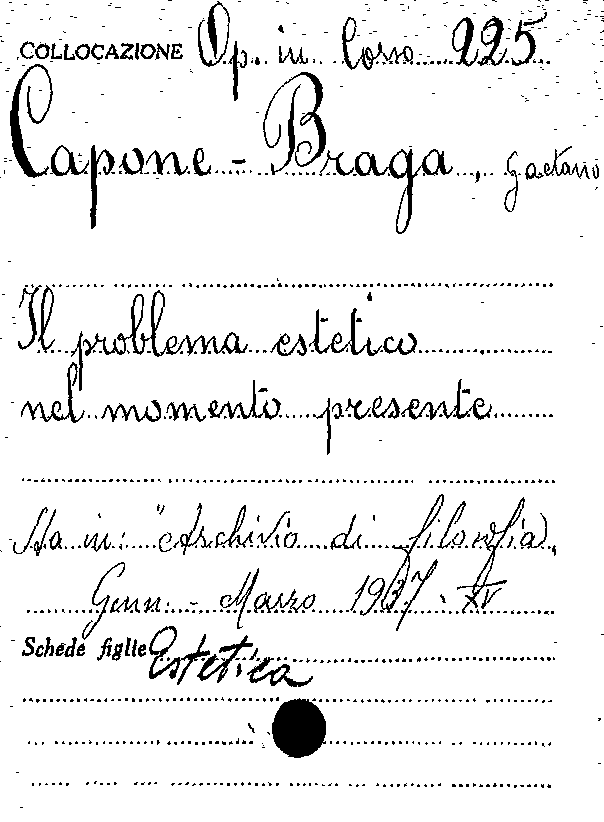 COLLOCAZIONE Op. in Corso 225
Capone - Braga, Gaetano
Il problema estetico
nel momento presente
Sta in: "Archivio di filosofia",
Genn. - Marzo 1937 - XV
Schede figlie Estetica